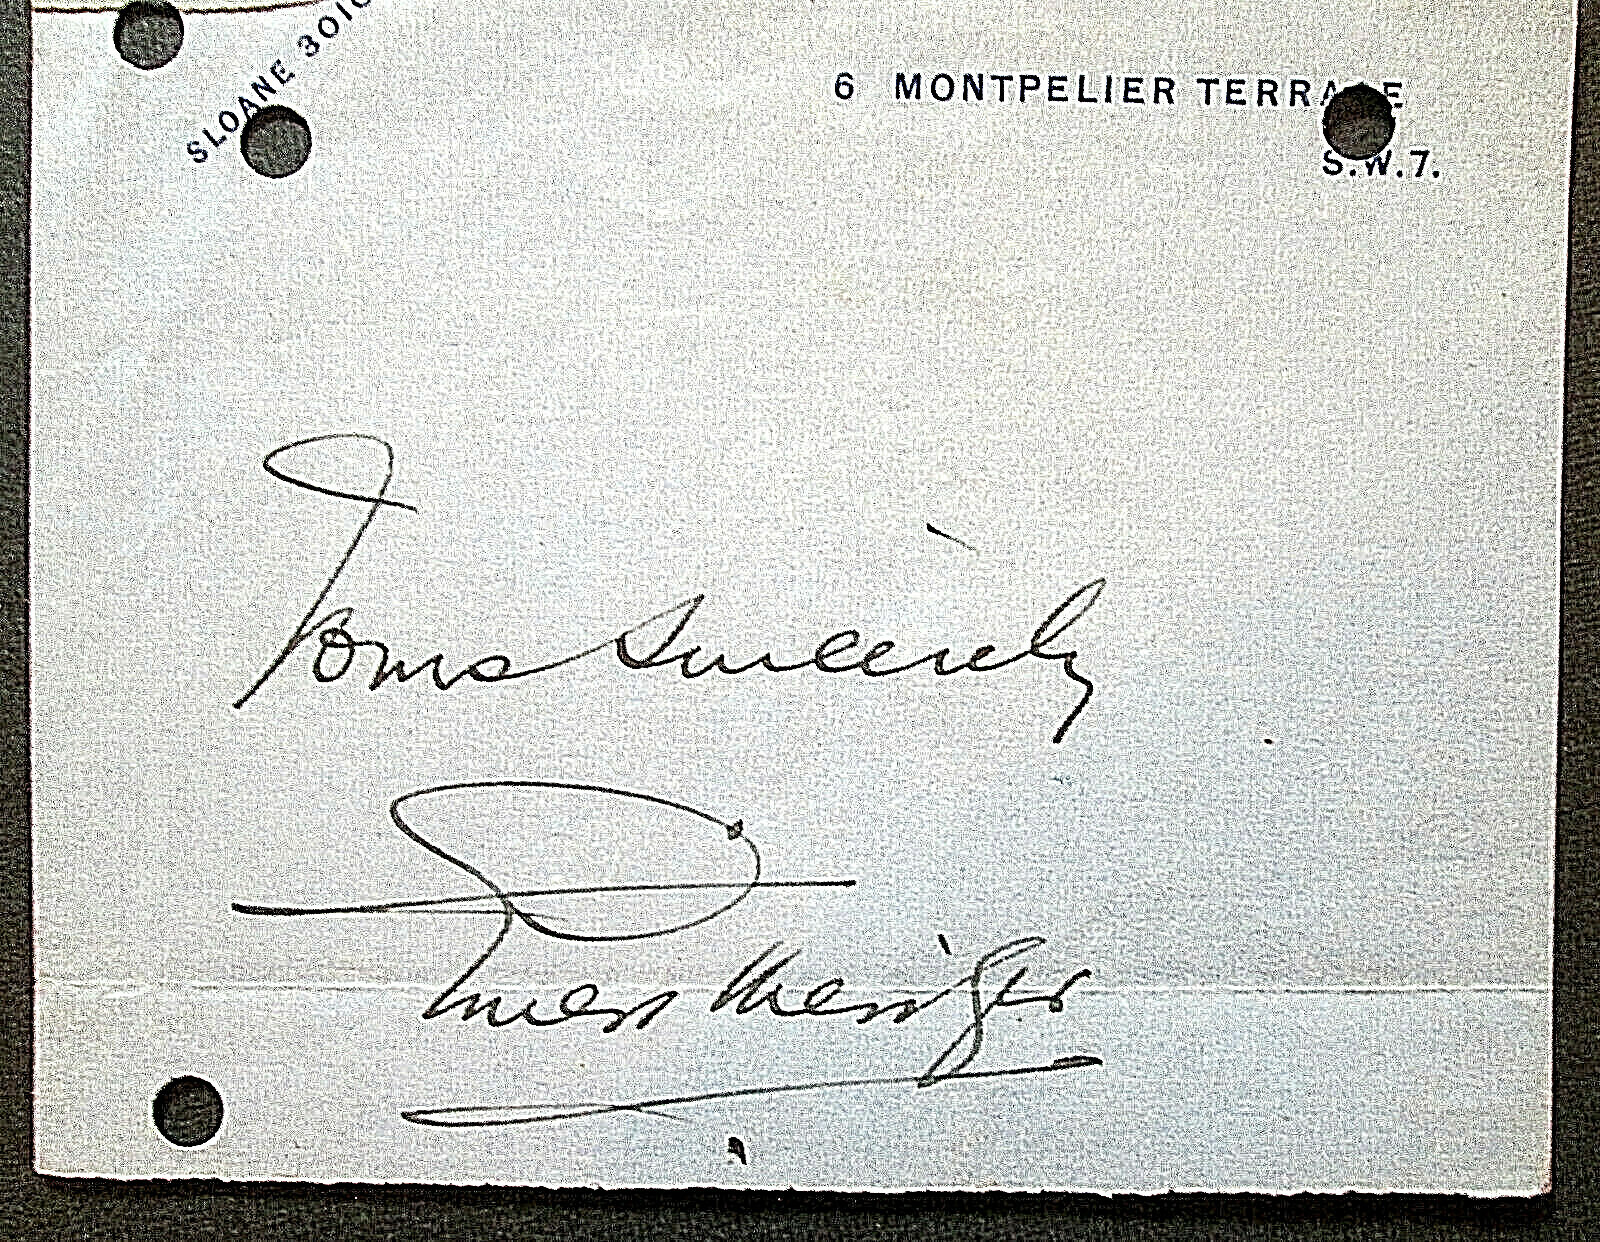 SLOANE 3010
6 MONTPELIER TERRACE
S.W.7.
Yours Sincerely
Ernest Thesiger